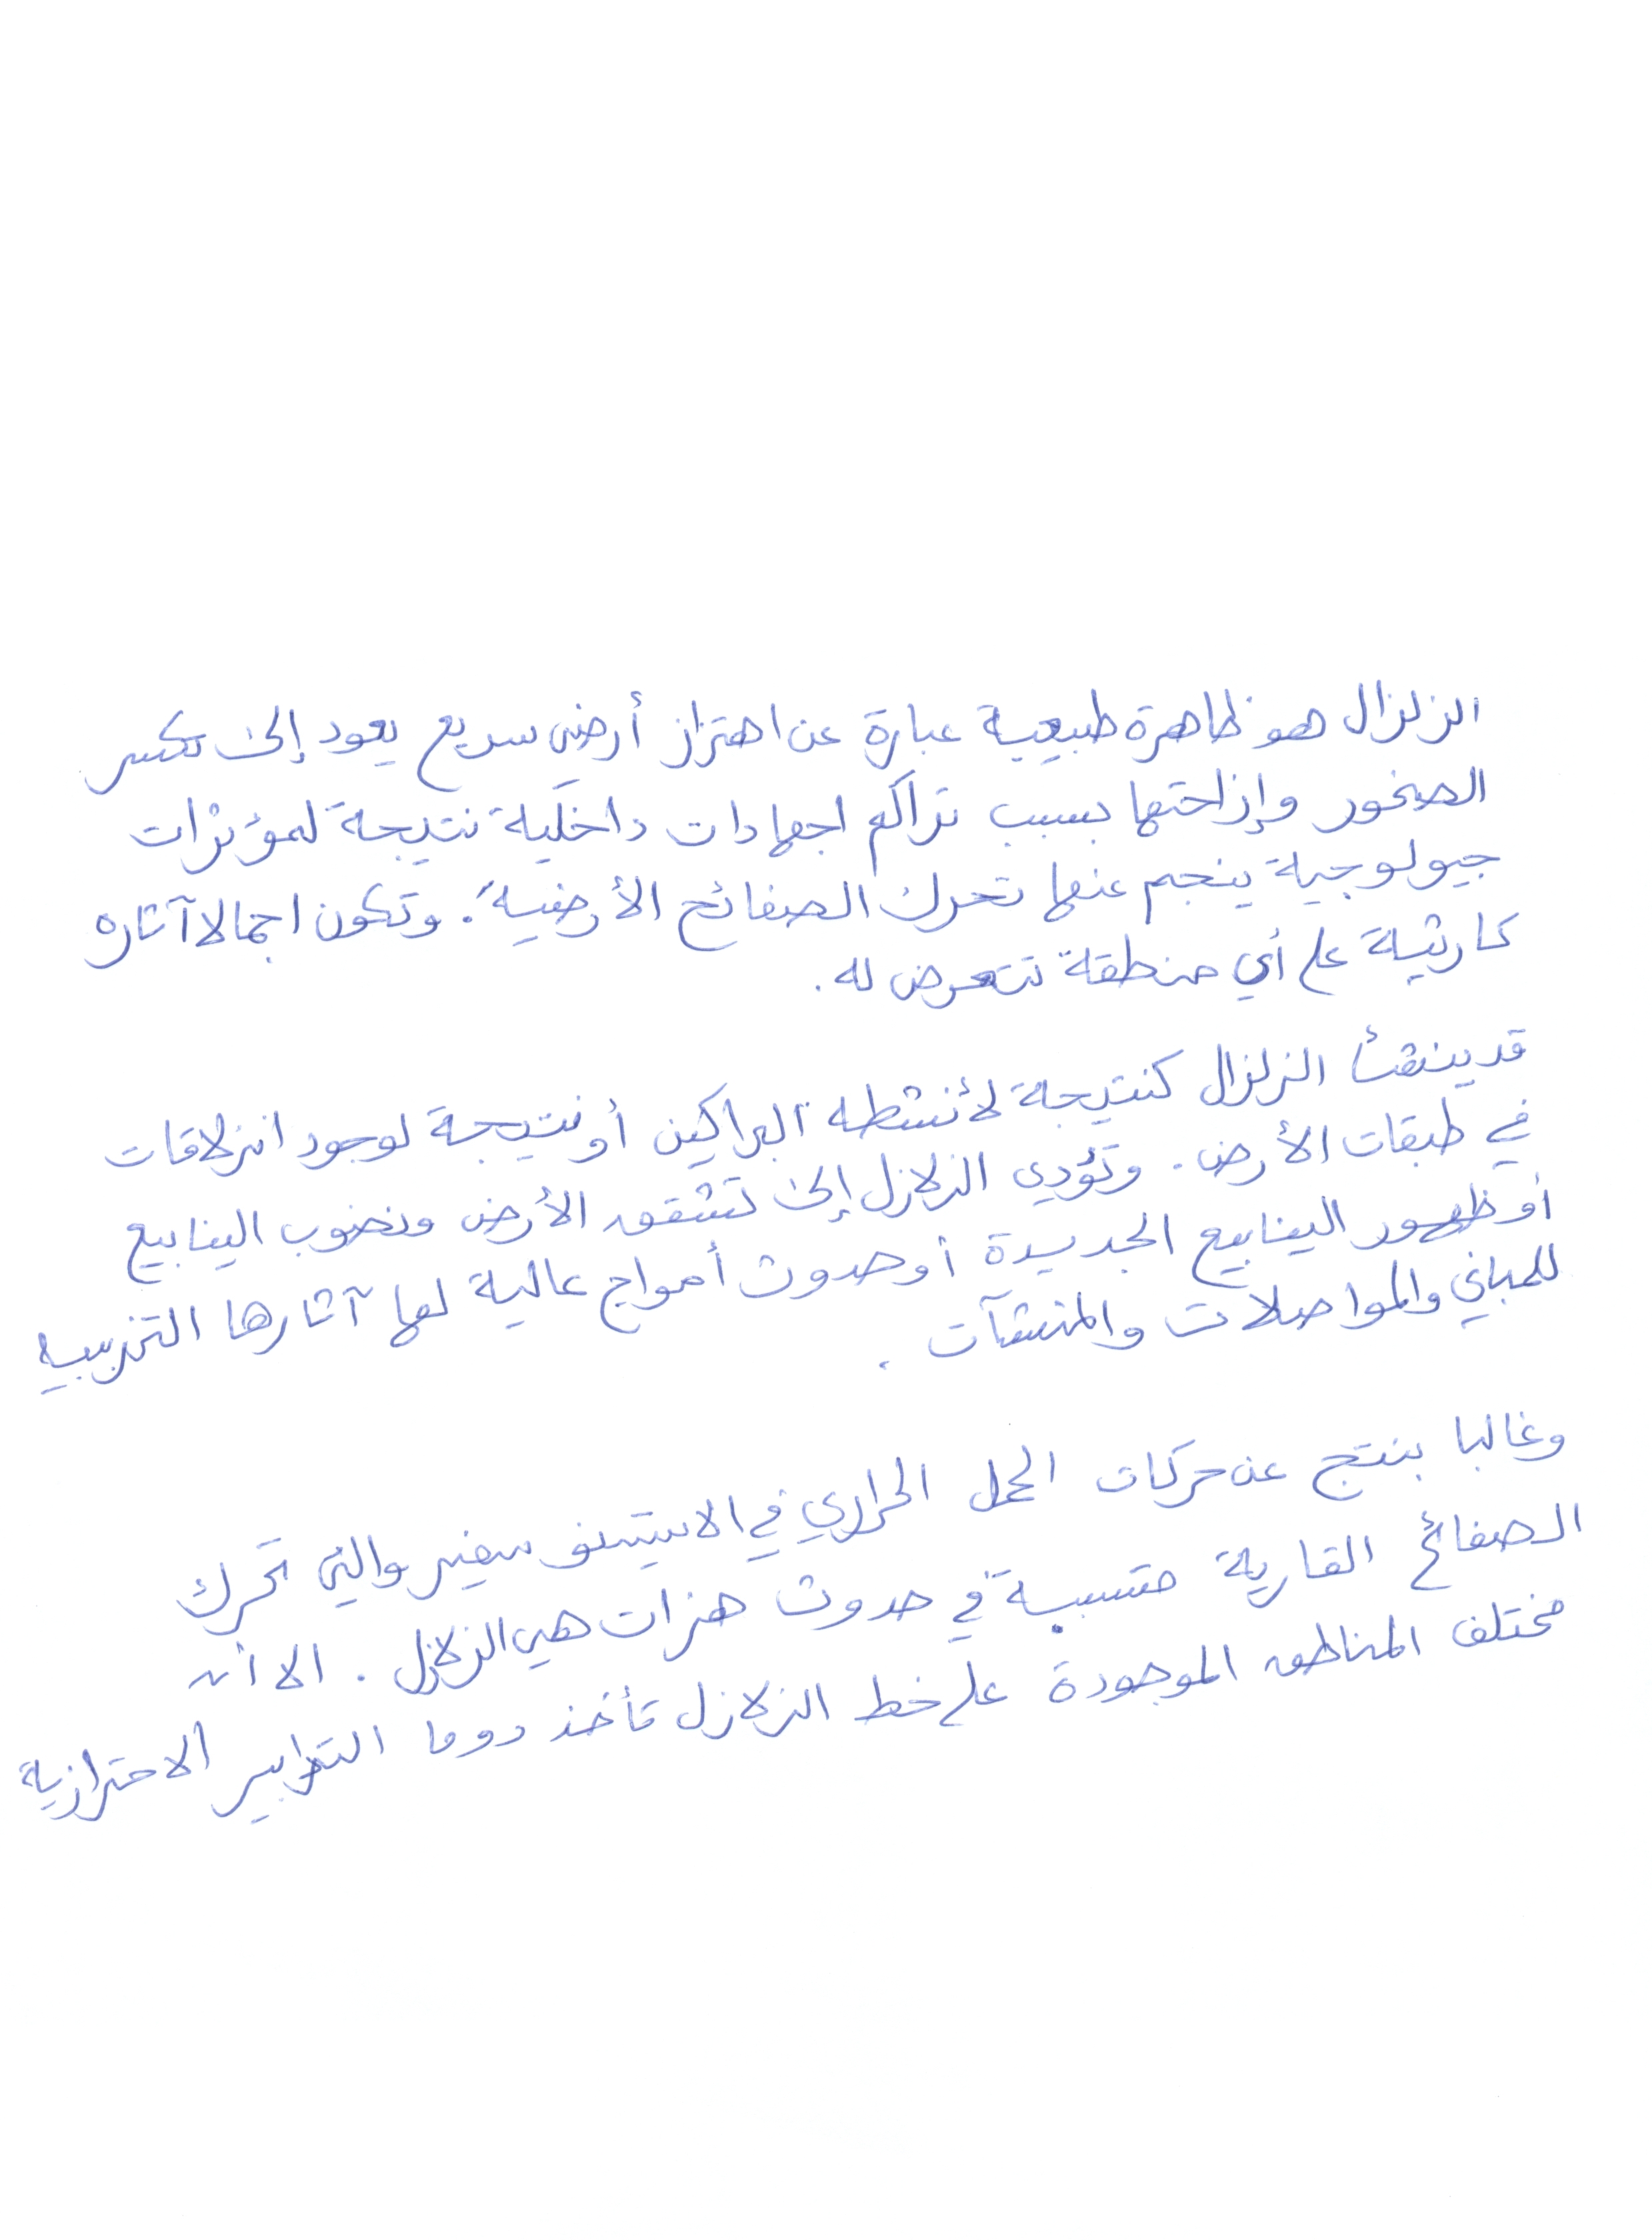 الزلزال هو ظاهرة طبيعية عبارة عن اهتزاز أرضي سريع يعود إلى تكسر
الصخور وإزاحتها بسبب تراكم اجهادات داخلية نتيجة لمؤثرات
جيولوجية ينجم عنها تحرك الصفائح الأرضية. وتكون اجمالا آثاره
كارثية على أي منطقة تتعرض له.
قد ينشأ الزلزال كنتيجة لأنشطه البراكين أو نتيجة لوجود انزلاقات
في طبقات الأرض. وتؤدي الزلازل إلى تشقق الأرض ونضوب الينابيع
أو ظهور الينابيع الجديدة أو حدوث أمواج عالية لها آثارها التخريبيه
للمباني والمواصلات والمنشآت.
وغالبا ينتج عن حركات الحمل الحراري في الاستينوسفير والتي تحرك
الصفائح القارية متسببة في حدوث هزات هي الزلازل. الا أنه
مختلف المناطق الموجودة على خط الزلازل تأخذ دوما التدابير الاحترازية